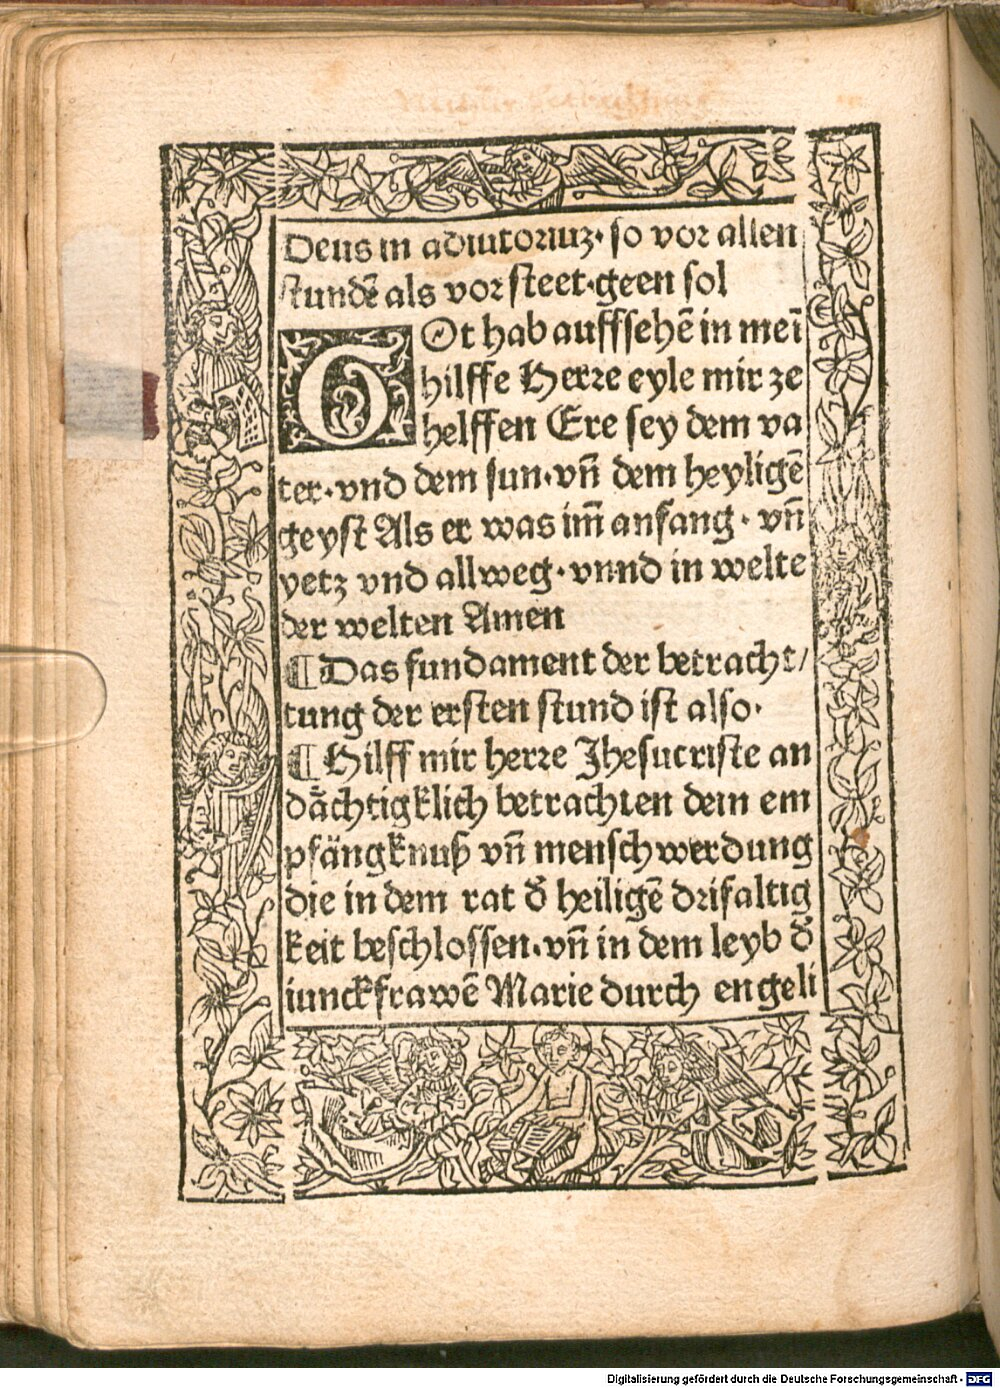 Deus in adiutoriuʒ· so vor allen
stundē als vor steet·geen sol
GOt hab auffsehē in meī
hilffe Herre eyle mir ze
helffen Ere sey dem va
ter·vnd dem sun·vn̄ dem heyligē
geyst Als er was im̄ anfang· vn̄
yetz vnd allweg·vnnd in welte
der welten Amen
¶ Das fundament der betracht/
tung der ersten stund ist also·
¶ Hilff mir herre Jhesucriste an
dåchtigklich betrachten dein em
pfångknuß vn̄ menschwerdung
die in dem rat d̄ heiligē drifaltig
keit beschlossen·vn̄ in dem leyb d̄
iunckfrawē Marie durch engeli
Digitalisierung gefördert durch die Deutsche Forschungsgemeinschaft - DFG